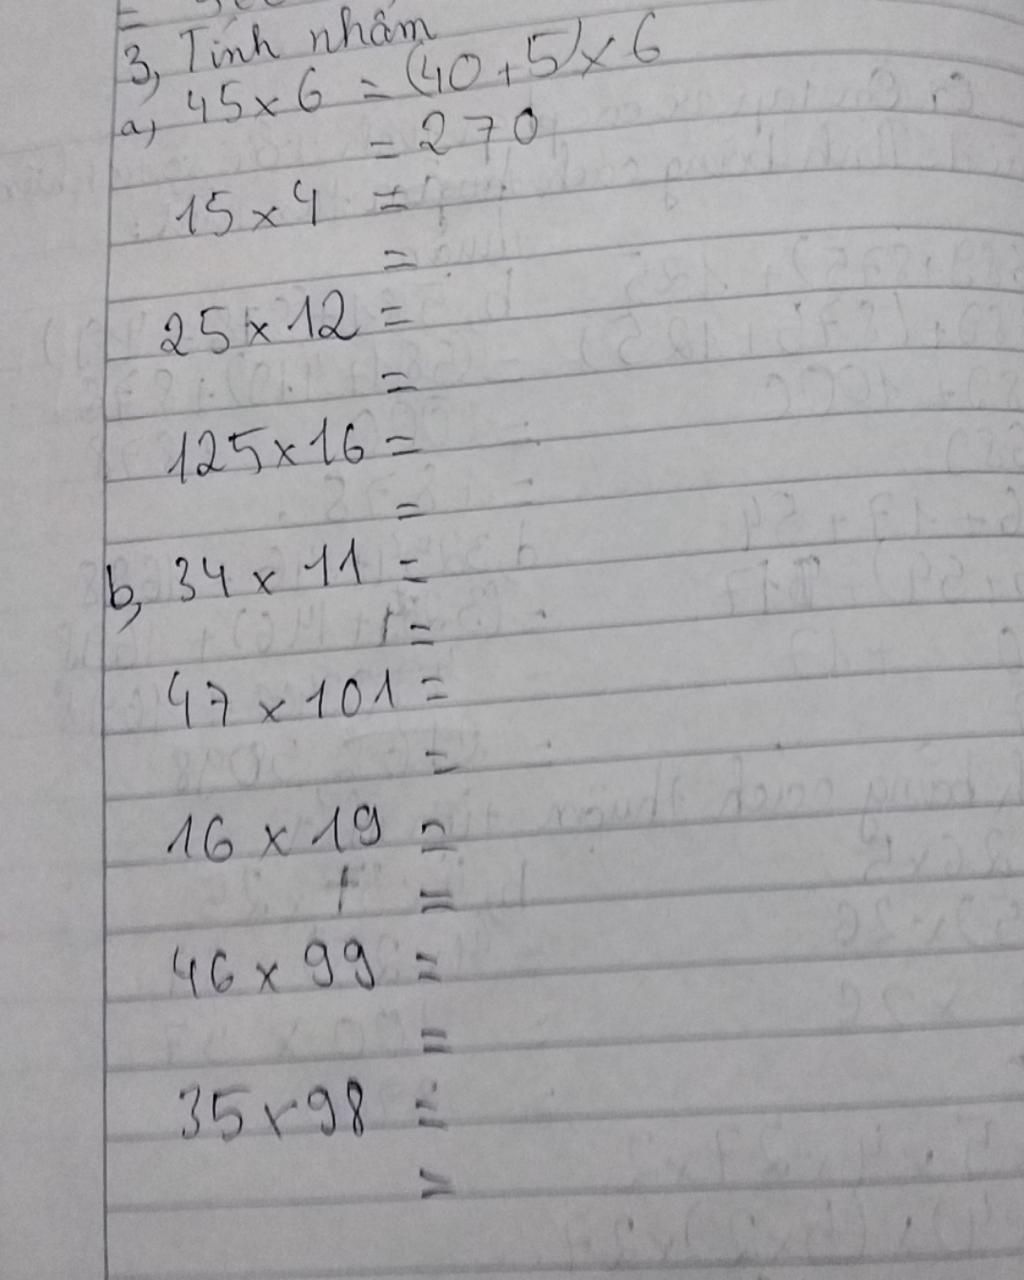 3, Tính nhẩm
a, 45 x 6 = (40 + 5) x 6
= 270
15 x 4 =
=
25 x 12 =
=
125 x 16 =
=
b, 34 x 11 =
=
47 x 101 =
=
16 x 19 =
=
46 x 99 =
=
35 x 98 =
=